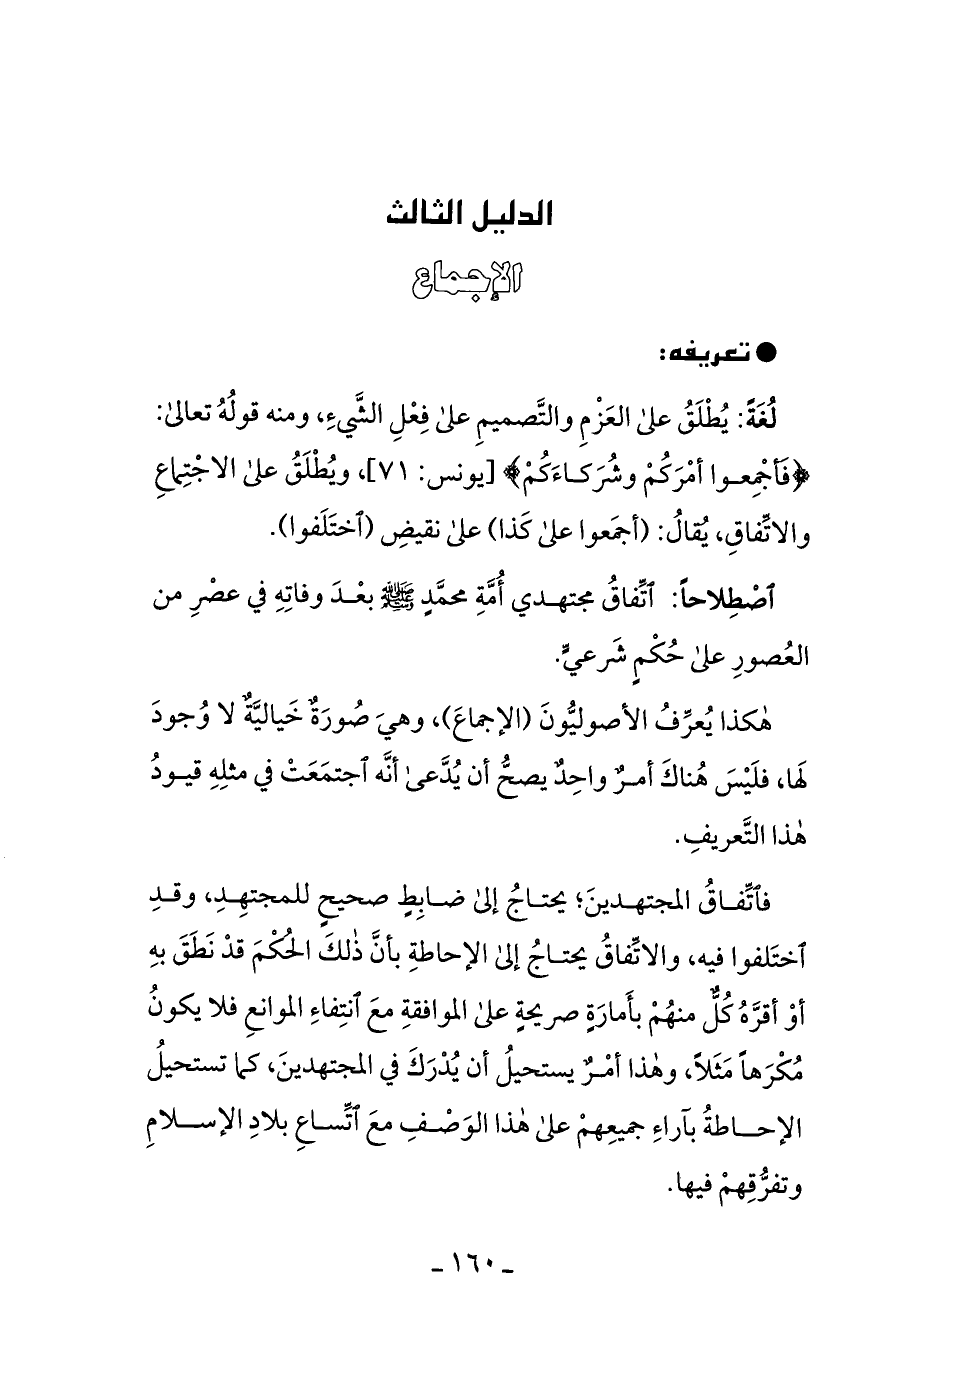 الدليل الثالث
الإجماع
● تعريفه:
لُغَةً: يُطْلَقُ علىٰ العَزْمِ والتَّصميمِ علىٰ فِعْلِ الشَّيءِ، ومنه قولُهُ تعالىٰ:
﴿فَأَجْمِعوا أمْرَكُمْ وشُرَكاءَكُمْ﴾ [يونس: ٧١]، ويُطْلَقُ علىٰ الاجْتِماعِ
والاتِّفاقِ، يُقالُ: (أجمَعوا علىٰ كَذا) علىٰ نقيضِ (ٱختَلَفوا).
ٱصْطِلاحاً: ٱتِّفاقُ مجتهدي أُمَّةِ محمَّدٍ ﷺ بعْدَ وفاتِهِ في عصْرٍ من
العُصورِ علىٰ حُكْمٍ شَرعيٍّ.
هٰكذا يُعرِّفُ الأصوليُّونَ (الإجماعَ)، وهيَ صُورَةٌ خَياليَّةٌ لا وُجودَ
لَها، فلَيْسَ هُناكَ أمرٌ واحِدٌ يصحُّ أن يُدَّعىٰ أنَّه ٱجتمَعَتْ في مثلِهِ قيودُ
هٰذا التَّعريفِ.
فٱتِّفاقُ المجتهدينَ؛ يحتاجُ إلىٰ ضابِطٍ صحيحٍ للمجتهِدِ، وقدِ
ٱختَلفوا فيه، والاتِّفاقُ يحتاجُ إلىٰ الإحاطةِ بأنَّ ذٰلكَ الحُكْمَ قدْ نَطَقَ بهِ
أوْ أقرَّهُ كُلٌّ منهُمْ بأَمارَةٍ صريحةٍ علىٰ الموافقةِ معَ ٱنتِفاءِ الموانعِ فلا يكونُ
مُكْرَهاً مَثَلاً، وهٰذا أمْرٌ يستحيلُ أن يُدْرَكَ في المجتهدينَ، كما تستحيلُ
الإحاطةُ بآراءِ جميعِهمْ علىٰ هٰذا الوَصْفِ معَ ٱتِّساعِ بلادِ الإسلامِ
وتفرُّقِهمْ فيها.
- ١٦٠ -